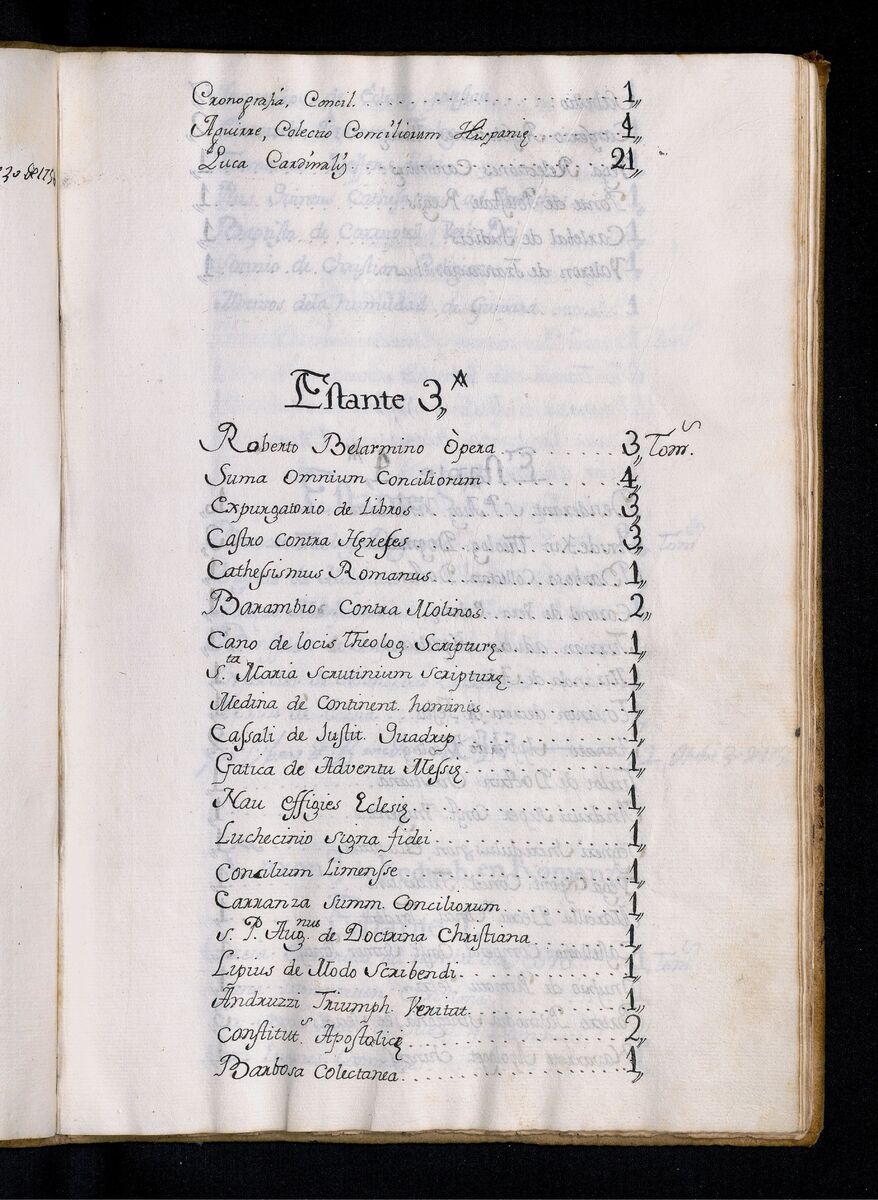 Cronografia, Concil. . . . . . . . . . . . . . . . . . . 1,,
Aguirre, Colectio Conciliorum Hispanię. . 4,,
Luca Cardinalis 21,,
Estante 3,,ᴬ
Roberto Belarmino Òpera . . . . . . . . . 3,, Tom.ˢ
Suma Omnium Conciliorum . . . . . . . . . . 4,,
Expurgatorio de Libros . . . . . . . . . . . . . . 3,,
Caſtro contra Hęreſes . . . . . . . . . . . . . . 3,,
Catheſsismus Romanus . . . . . . . . . . . . . 1,,
Barambios Contra Molinos . . . . . . . . . . 2,,
Cano de locis Theolog. Scripturę . . . . . . . . 1,,
S.ᵗᵃ Maria Scrutinium Scripturę . . . . . . . . 1,,
Medina de Continent. hominis . . . . . . . . . 1,,
Caſsali de Juſtit. Quadrip. . . . . . . . . . . . . 1,,
Gatica de Adventu Meſsię . . . . . . . . . . . 1,,
Nau effigies Eclesię . . . . . . . . . . . . . . . 1,,
Luchecinio Signa fidei . . . . . . . . . . . . . 1,,
Concilium Limenſse . . . . . . . . . . . . . . . 1,,
Carranza Summ. Conciliorum . . . . . . . . . 1,,
S. P. Aug.ⁿᵘˢ de Doctrina Christiana . . . . . . 1,,
Lipius de Modo Scribendi . . . . . . . . . . . 1,,
Andruzzi Triumph. Veritat. . . . . . . . . . . . 1,,
Conſtitut.ˢ Apoſtolicę . . . . . . . . . . . . . . 2,,
Barbosa Colectanea . . . . . . . . . . . . . . . 1,,